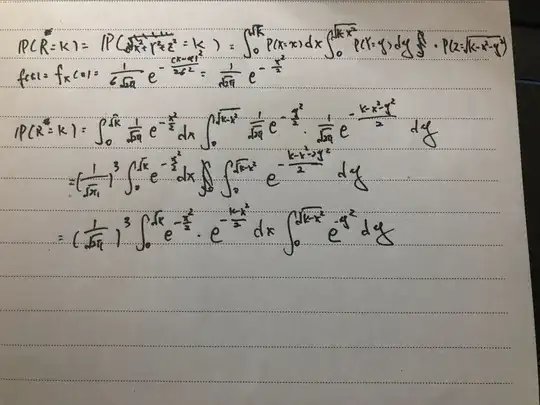 P(R²=k) = P(x²+y²+z²=k) = ∫₀^√k P(X=x)dx ∫₀^√(k-x²) P(Y=y)dy · P(Z=√(k-x²-y²))
f(x) = fₓ(x) = 1/(6√2π) e^(-(x-μ)²/2σ²) = 1/√2π e^(-x²/2)
P(R²=k) = ∫₀^√k 1/√2π e^(-x²/2) dx ∫₀^√(k-x²) 1/√2π e^(-y²/2) · 1/√2π e^(-(k-x²-y²)/2) dy
= (1/√2π)³ ∫₀^√k e^(-x²/2) dx ∫₀^√(k-x²) e^(-(k-x²-2y²)/2) dy
= (1/√2π)³ ∫₀^√k e^(-x²/2) · e^(-(k-x²)/2) dx ∫₀^√(k-x²) e^(-y²) dy